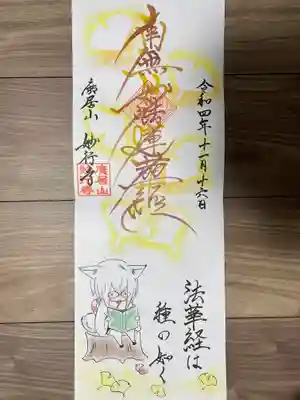 令和四年十一月十六日
南無妙法蓮華経
妙行寺
法華経は
種の如く